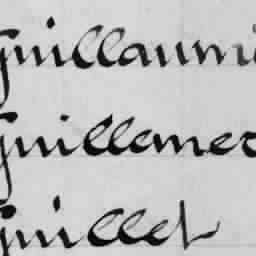 Guillaumi
Guillemet
Guillet